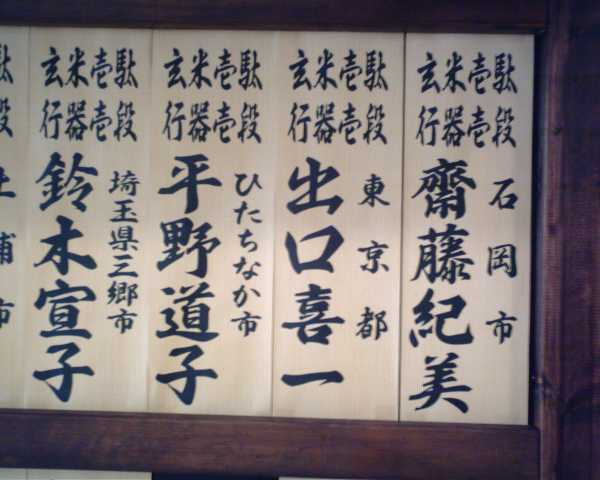 玄米壱駄
行器壱段
石岡市
齋藤紀美
玄米壱駄
行器壱段
東京都
出口喜一
玄米壱駄
行器壱段
ひたちなか市
平野道子
玄米壱駄
行器壱段
埼玉県三郷市
鈴木宣子
駄
段
土浦市